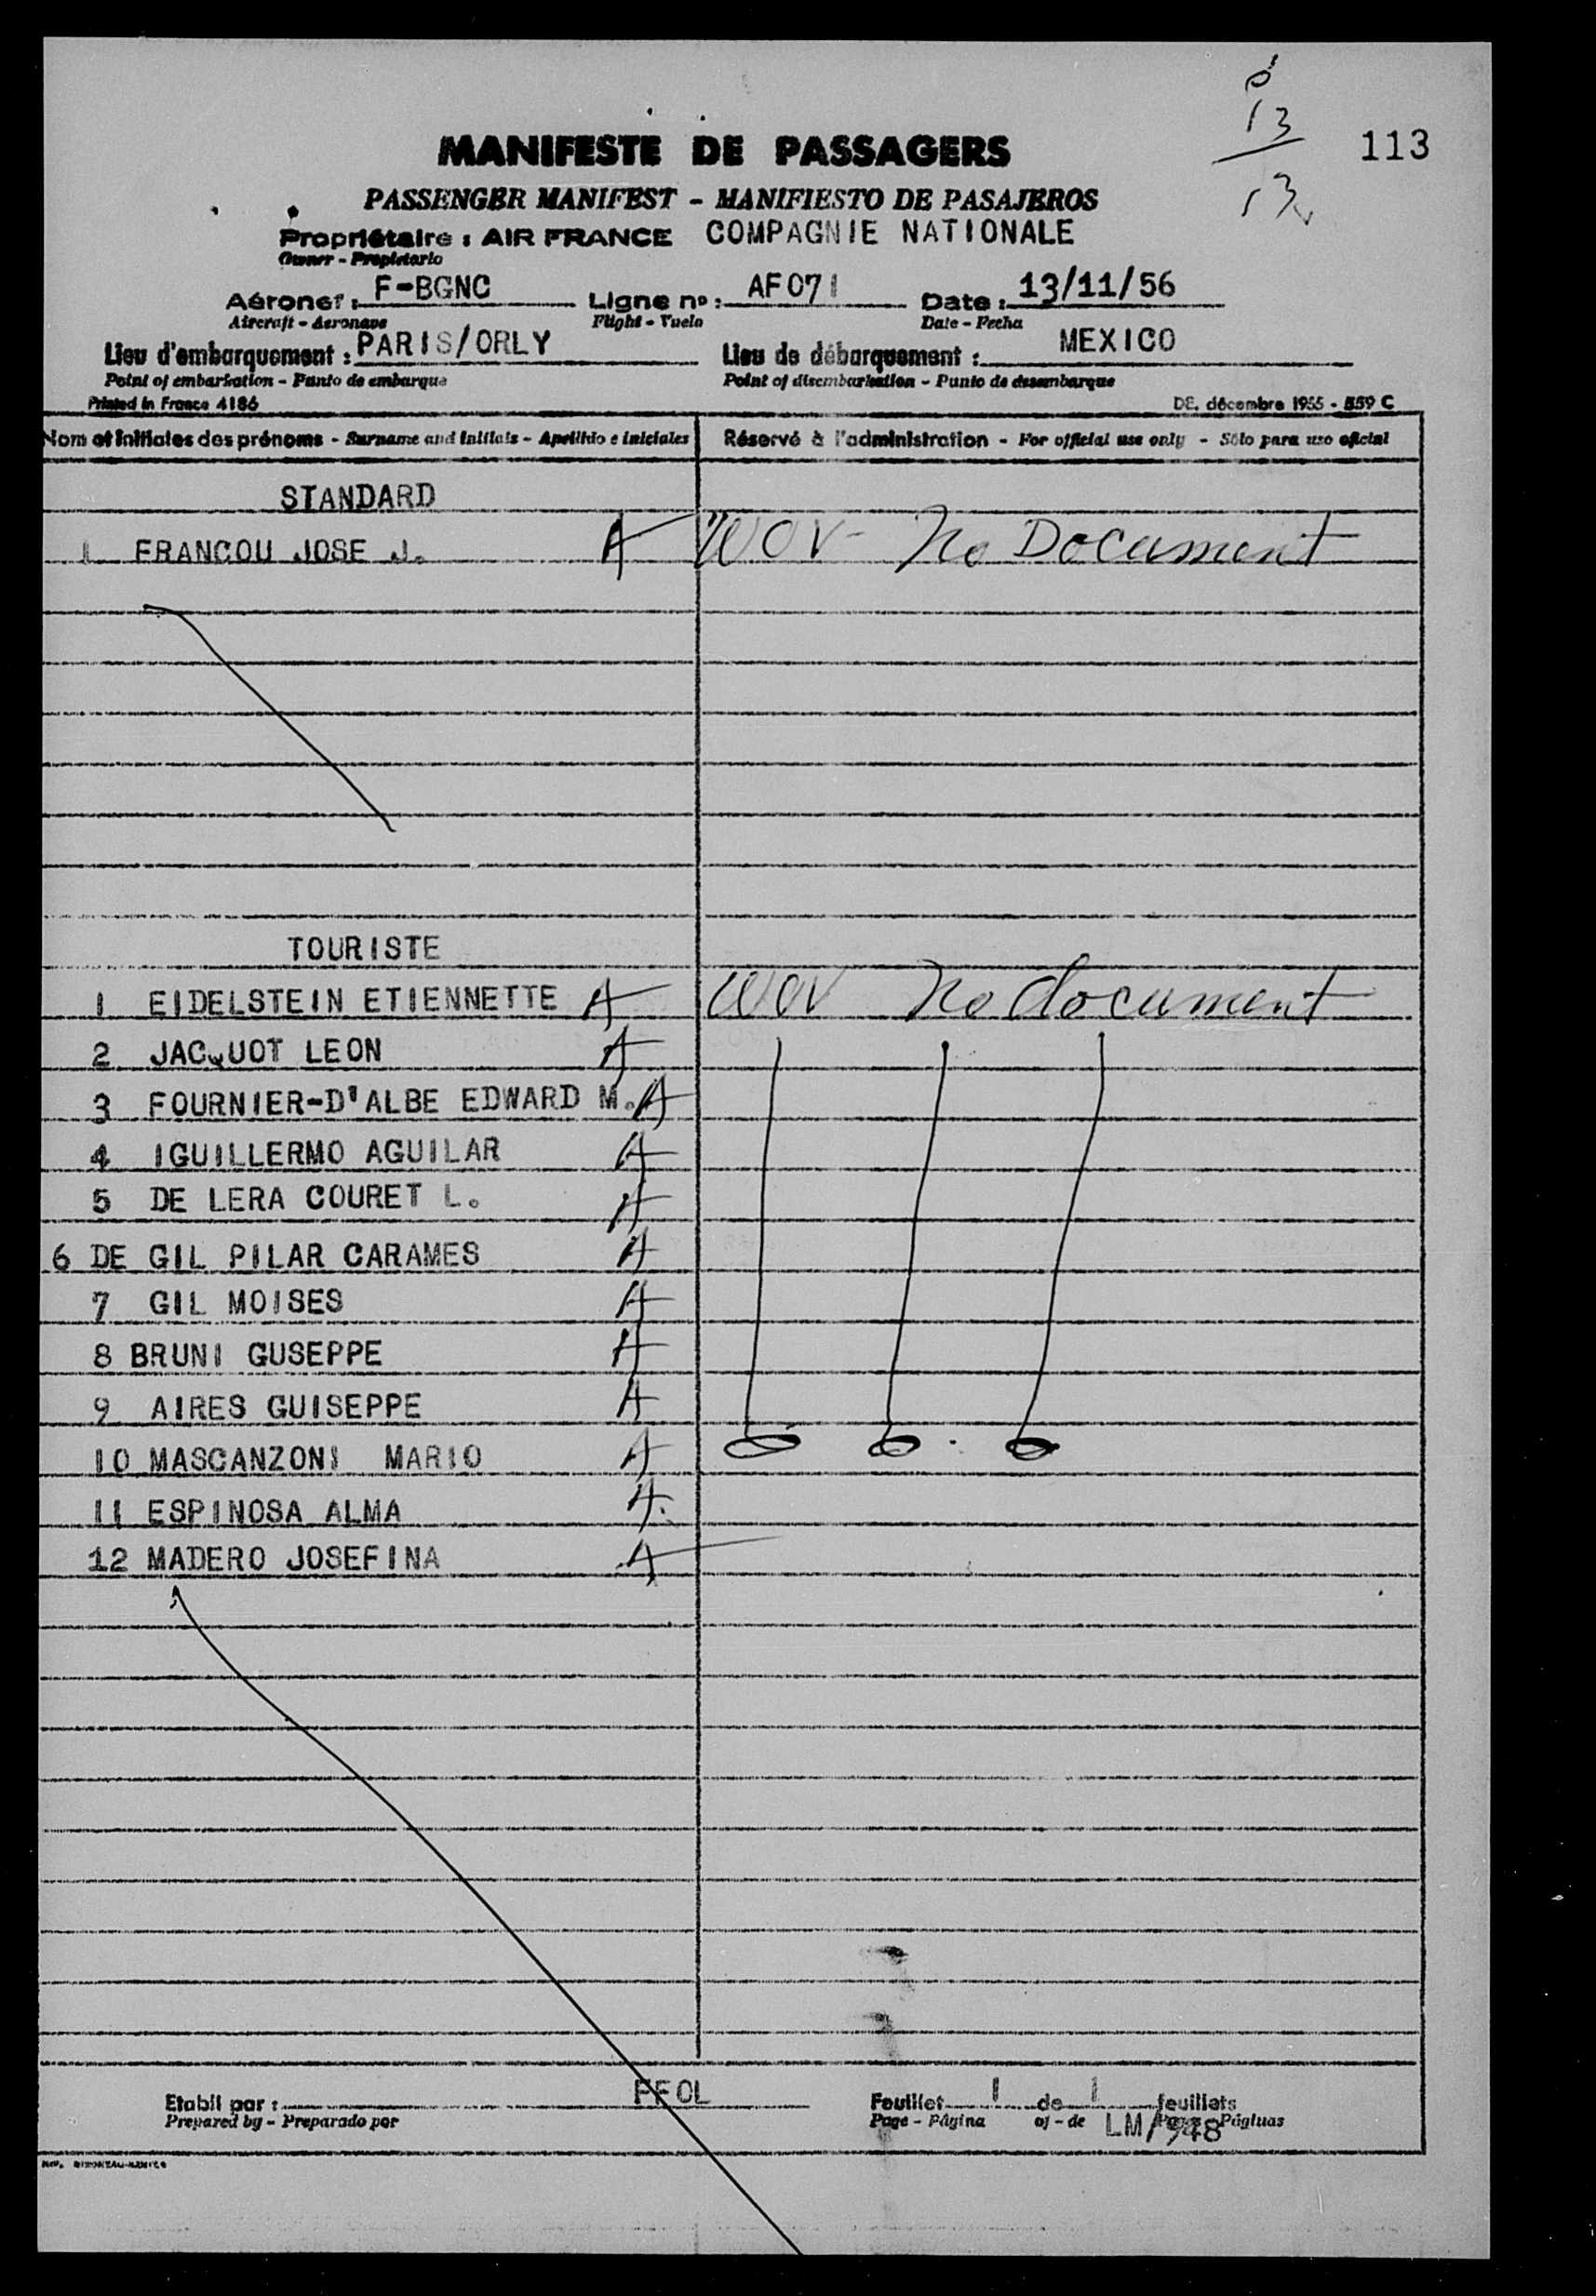 13
13
113
MANIFESTE DE PASSAGERS
PASSENGER MANIFEST - MANIFIESTO DE PASAJEROS
Propriétaire : AIR FRANCE COMPAGNIE NATIONALE
Owner - Propietario
Aéronef : F-BGNC Ligne nº : AF071 Date : 13/11/56
Aircraft - Aeronave Flight - Vuelo Date - Fecha
Lieu d'embarquement : PARIS/ORLY Lieu de débarquement : MEXICO
Point of embarkation - Punto de embarque Point of disembarkation - Punto de desembarque
Printed in France 4186 DE. décembre 1955 - 559 C
Nom et initiales des prénoms - Surname and initials - Apellido e iniciales Réservé à l'administration - For official use only - Sólo para uso oficial
STANDARD
1 FRANCOU JOSE J. A WOV - No Document
TOURISTE
1 EIDELSTEIN ETIENNETTE A WOV No document
2 JACQUOT LEON A
3 FOURNIER-D'ALBE EDWARD M. A
4 IGUILLERMO AGUILAR A
5 DE LERA COURET L. A
6 DE GIL PILAR CARAMES A
7 GIL MOISES A
8 BRUNI GUSEPPE A
9 AIRES GUISEPPE A
10 MASCANZONI MARIO A
11 ESPINOSA ALMA A
12 MADERO JOSEFINA A
Etabli par : FFOL Feuillet 1 de 1 feuillets
Prepared by - Preparado por Page - Página of - de Páginas
LM/948